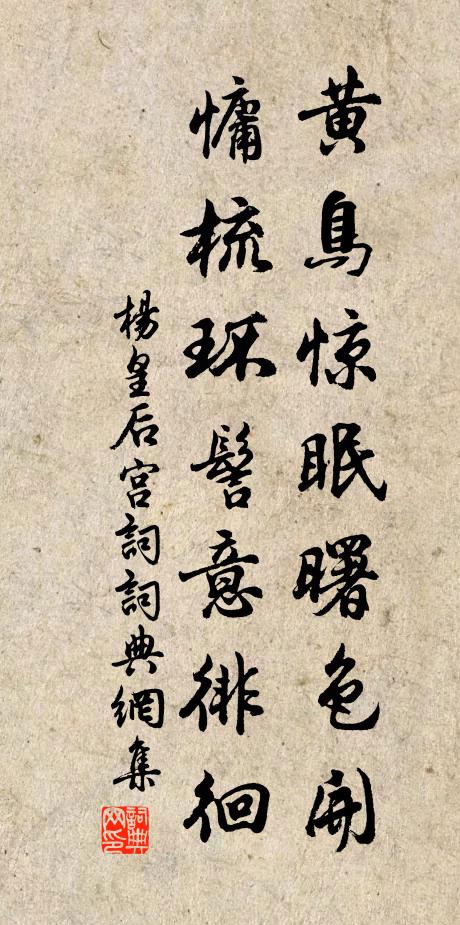 黄鳥惊眠曙色開
慵梳环髻意徘徊
楊皇后宫詞詞典網集
詞典网印